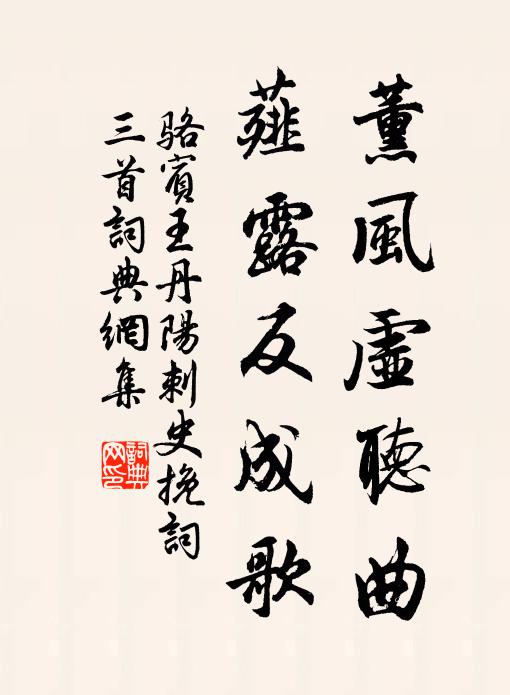 薰風虛聽曲
薤露反成歌
駱賓王丹陽刺史挽詞
三首詞典網集
詞典
网印